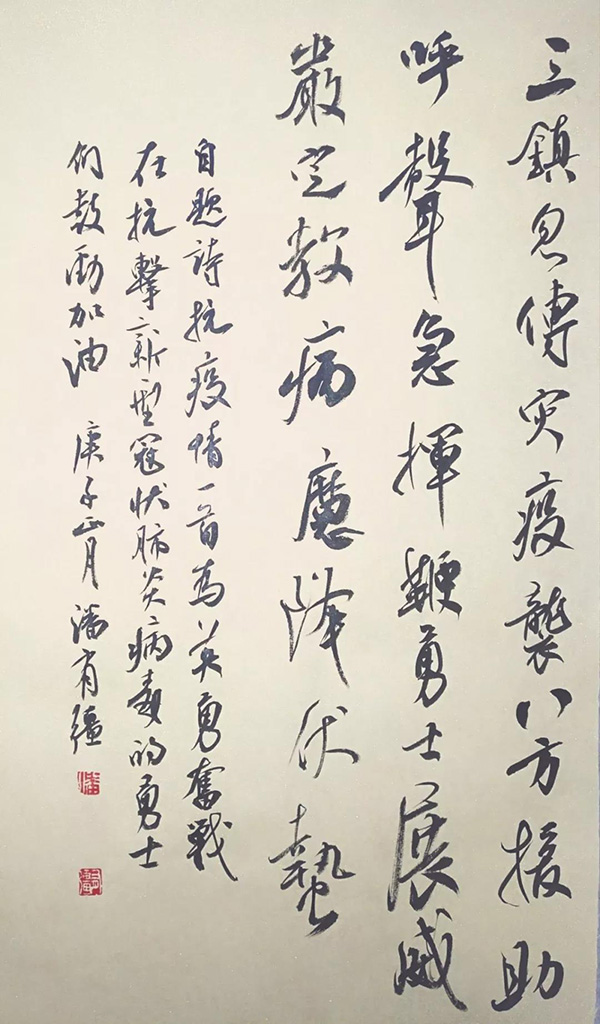 三鎮忽傳灾疫襲八方援助
呼聲急揮鞭勇士展威
嚴定教病魔降伏蟄
自題詩抗疫情一首為英勇奮戰
在抗擊新型冠狀肺炎病毒的勇士
們鼓勁加油 庚子正月 潘有疆
潘